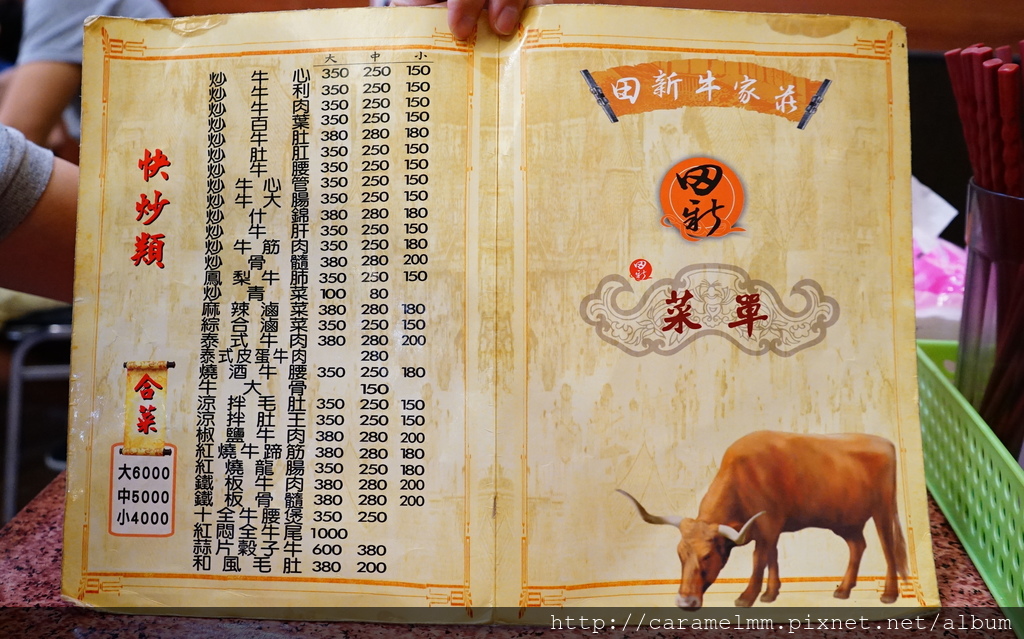 快炒類
大 中 小
炒牛心 350 250 150
炒牛利 350 250 150
炒牛肉 350 250 150
炒百葉 350 250 150
炒牛肚 380 280 180
炒肚肛 350 250 150
炒牛腰 350 250 150
炒牛心管 350 250 150
炒牛大腸 350 250 150
炒什錦 380 280 180
炒牛肝 350 250 150
炒牛筋肉 350 250 180
炒骨髓 380 280 200
鳳梨牛肺 350 250 150
炒青菜 100 80
麻辣滷菜 380 280 180
綜合滷菜 350 250 150
泰式牛肉 380 280 200
泰式皮蛋牛肉 280
燒酒牛腰 350 250 180
牛大骨 150
涼拌毛肚 350 250 150
涼拌肚王 350 250 150
椒鹽牛肉 380 280 200
紅燒牛蹄筋 380 280 180
紅燒龍腸 350 250 180
鐵板牛肉 380 280 200
鐵板骨髓 380 280 200
十全牛腰煲 350 250
紅悶全牛尾 1000
蒜片穀子牛 600 380
和風毛肚 380 200
合菜
大6000
中5000
小4000
田新牛家莊
田新
田新
菜單
http://caramelmm.pixnet.net/album